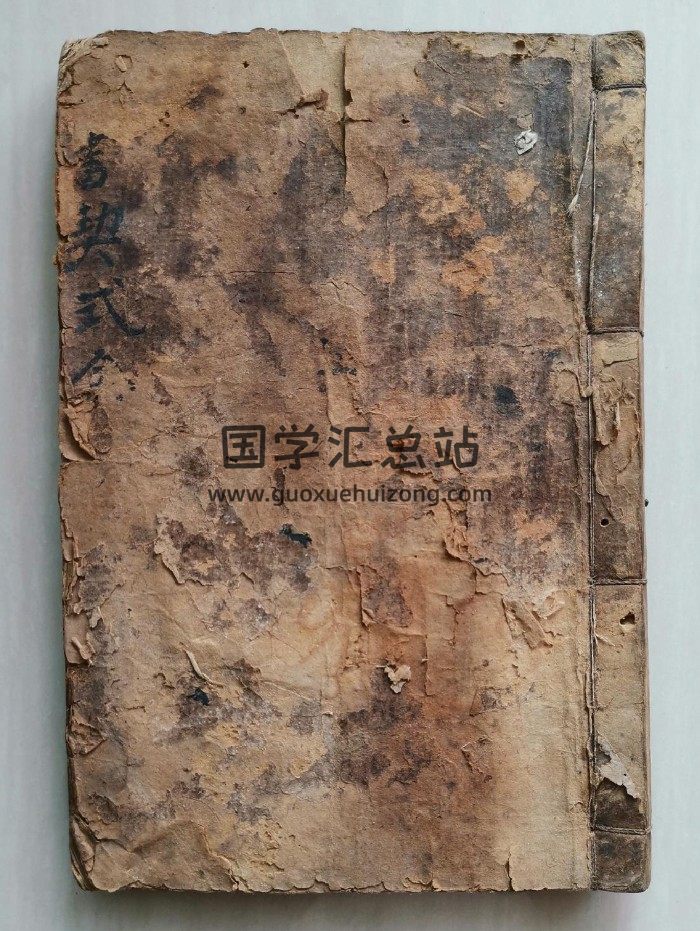 書契式全
国学汇总站
www.guoxuehuizong.com